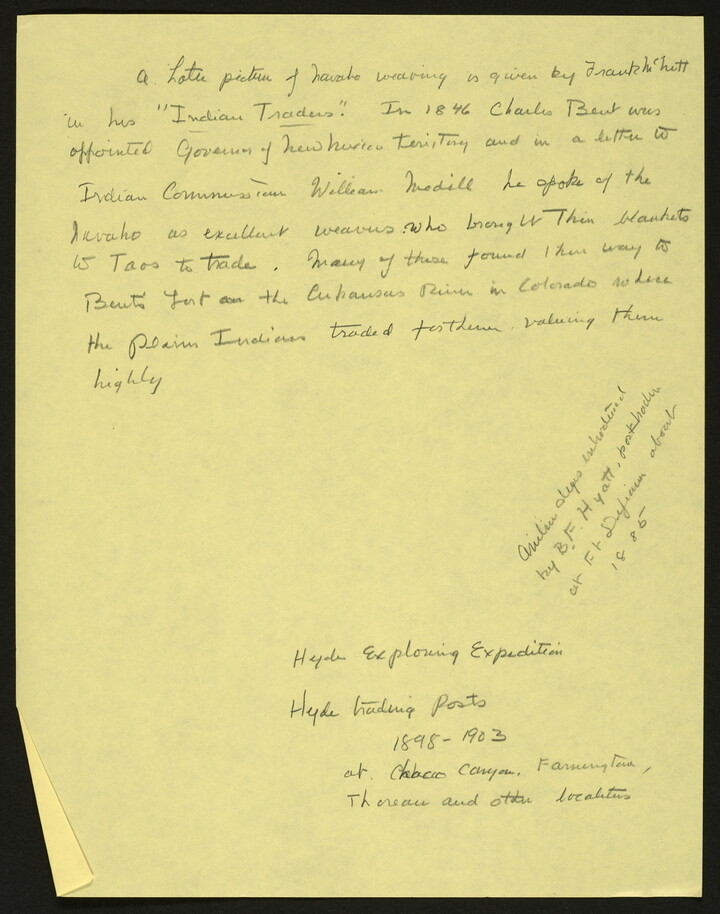 A later picture of Navaho weaving is given by Frank McNitt
in his "Indian Traders". In 1846 Charles Bent was
appointed Governor of New Mexico Territory and in a letter to
Indian Commission William Medill he spoke of the
Navaho as excellent weavers who brought thin blankets
to Taos to trade. Many of these found their way to
Bent's Fort on the Arkansas River in Colorado where
the Plains Indians traded for them, valuing them
highly
Anilin dyes introduced
by B.F. Hyatt, post trader
at Ft Defiance about
1885
Hyde Exploring Expedition
Hyde trading Posts
1898-1903
at. Chaco Canyon, Farmington,
Thoreau and other localities